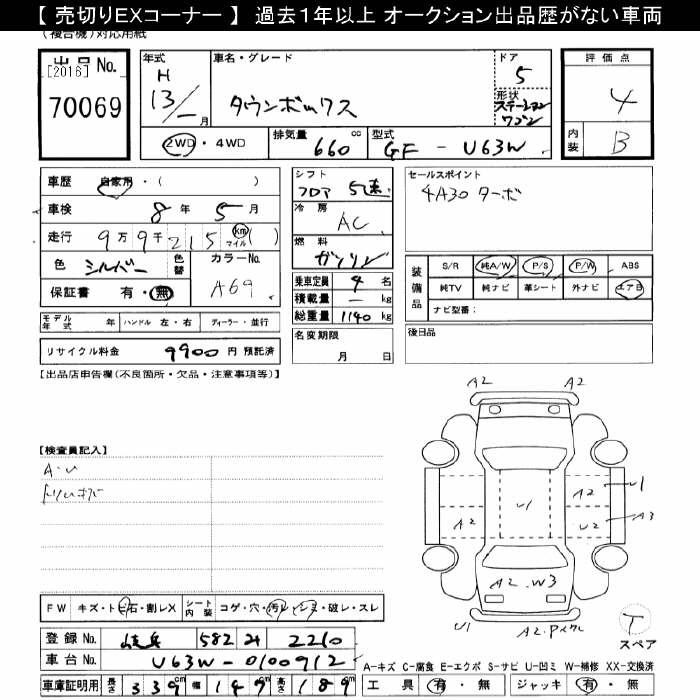 【 売切りEXコーナー 】 過去1年以上 オークション出品歴がない車両
(複合機)対応用紙
出品 No.
[2016]
70069
年式
H
13/ 月
車名・グレード
タウンボックス
ドア
5
形状
ステーション
ワゴン
2WD ・ 4WD
排気量 660 cc
型式 GF - U63W
評価点
4
内装 B
車歴 自家用 ・( )
車検 8年 5月
走行 9万9千215 km マイル ( )
色 シルバー
色替
カラーNo. A69
保証書 有・無
シフト
フロア 5速
冷房
AC
燃料
ガソリン
乗車定員 4 名
積載量 - kg
総重量 1140 kg
セールスポイント
4A30 ターボ
装備品
S/R 純A/W P/S P/W ABS
純TV 純ナビ 革シート 外ナビ エアB
ナビ型番:
モデル年式 年 ハンドル 左・右 ディーラー・並行
リサイクル料金 9900 円 預託済
名変期限
月 日
後日品
【出品店申告欄(不良箇所・欠品・注意事項等)】
【検査員記入】
A・U
A2 A2
U1
A2 U1
A2 U2 A3
A2.W3
U1
T
スペア
FW キズ・トビ石・割レX
シート内装 コゲ・穴・汚レ・シミ・破レ・スレ
登録 No. 582 2210
車台 No. U63W-0100912
車庫証明用 長さ 339cm 幅 147cm 高さ 189cm
A-キズ C-腐食 E-エクボ S-サビ U-凹ミ W-補修 XX-交換済
工具 有・無 ジャッキ 有・無